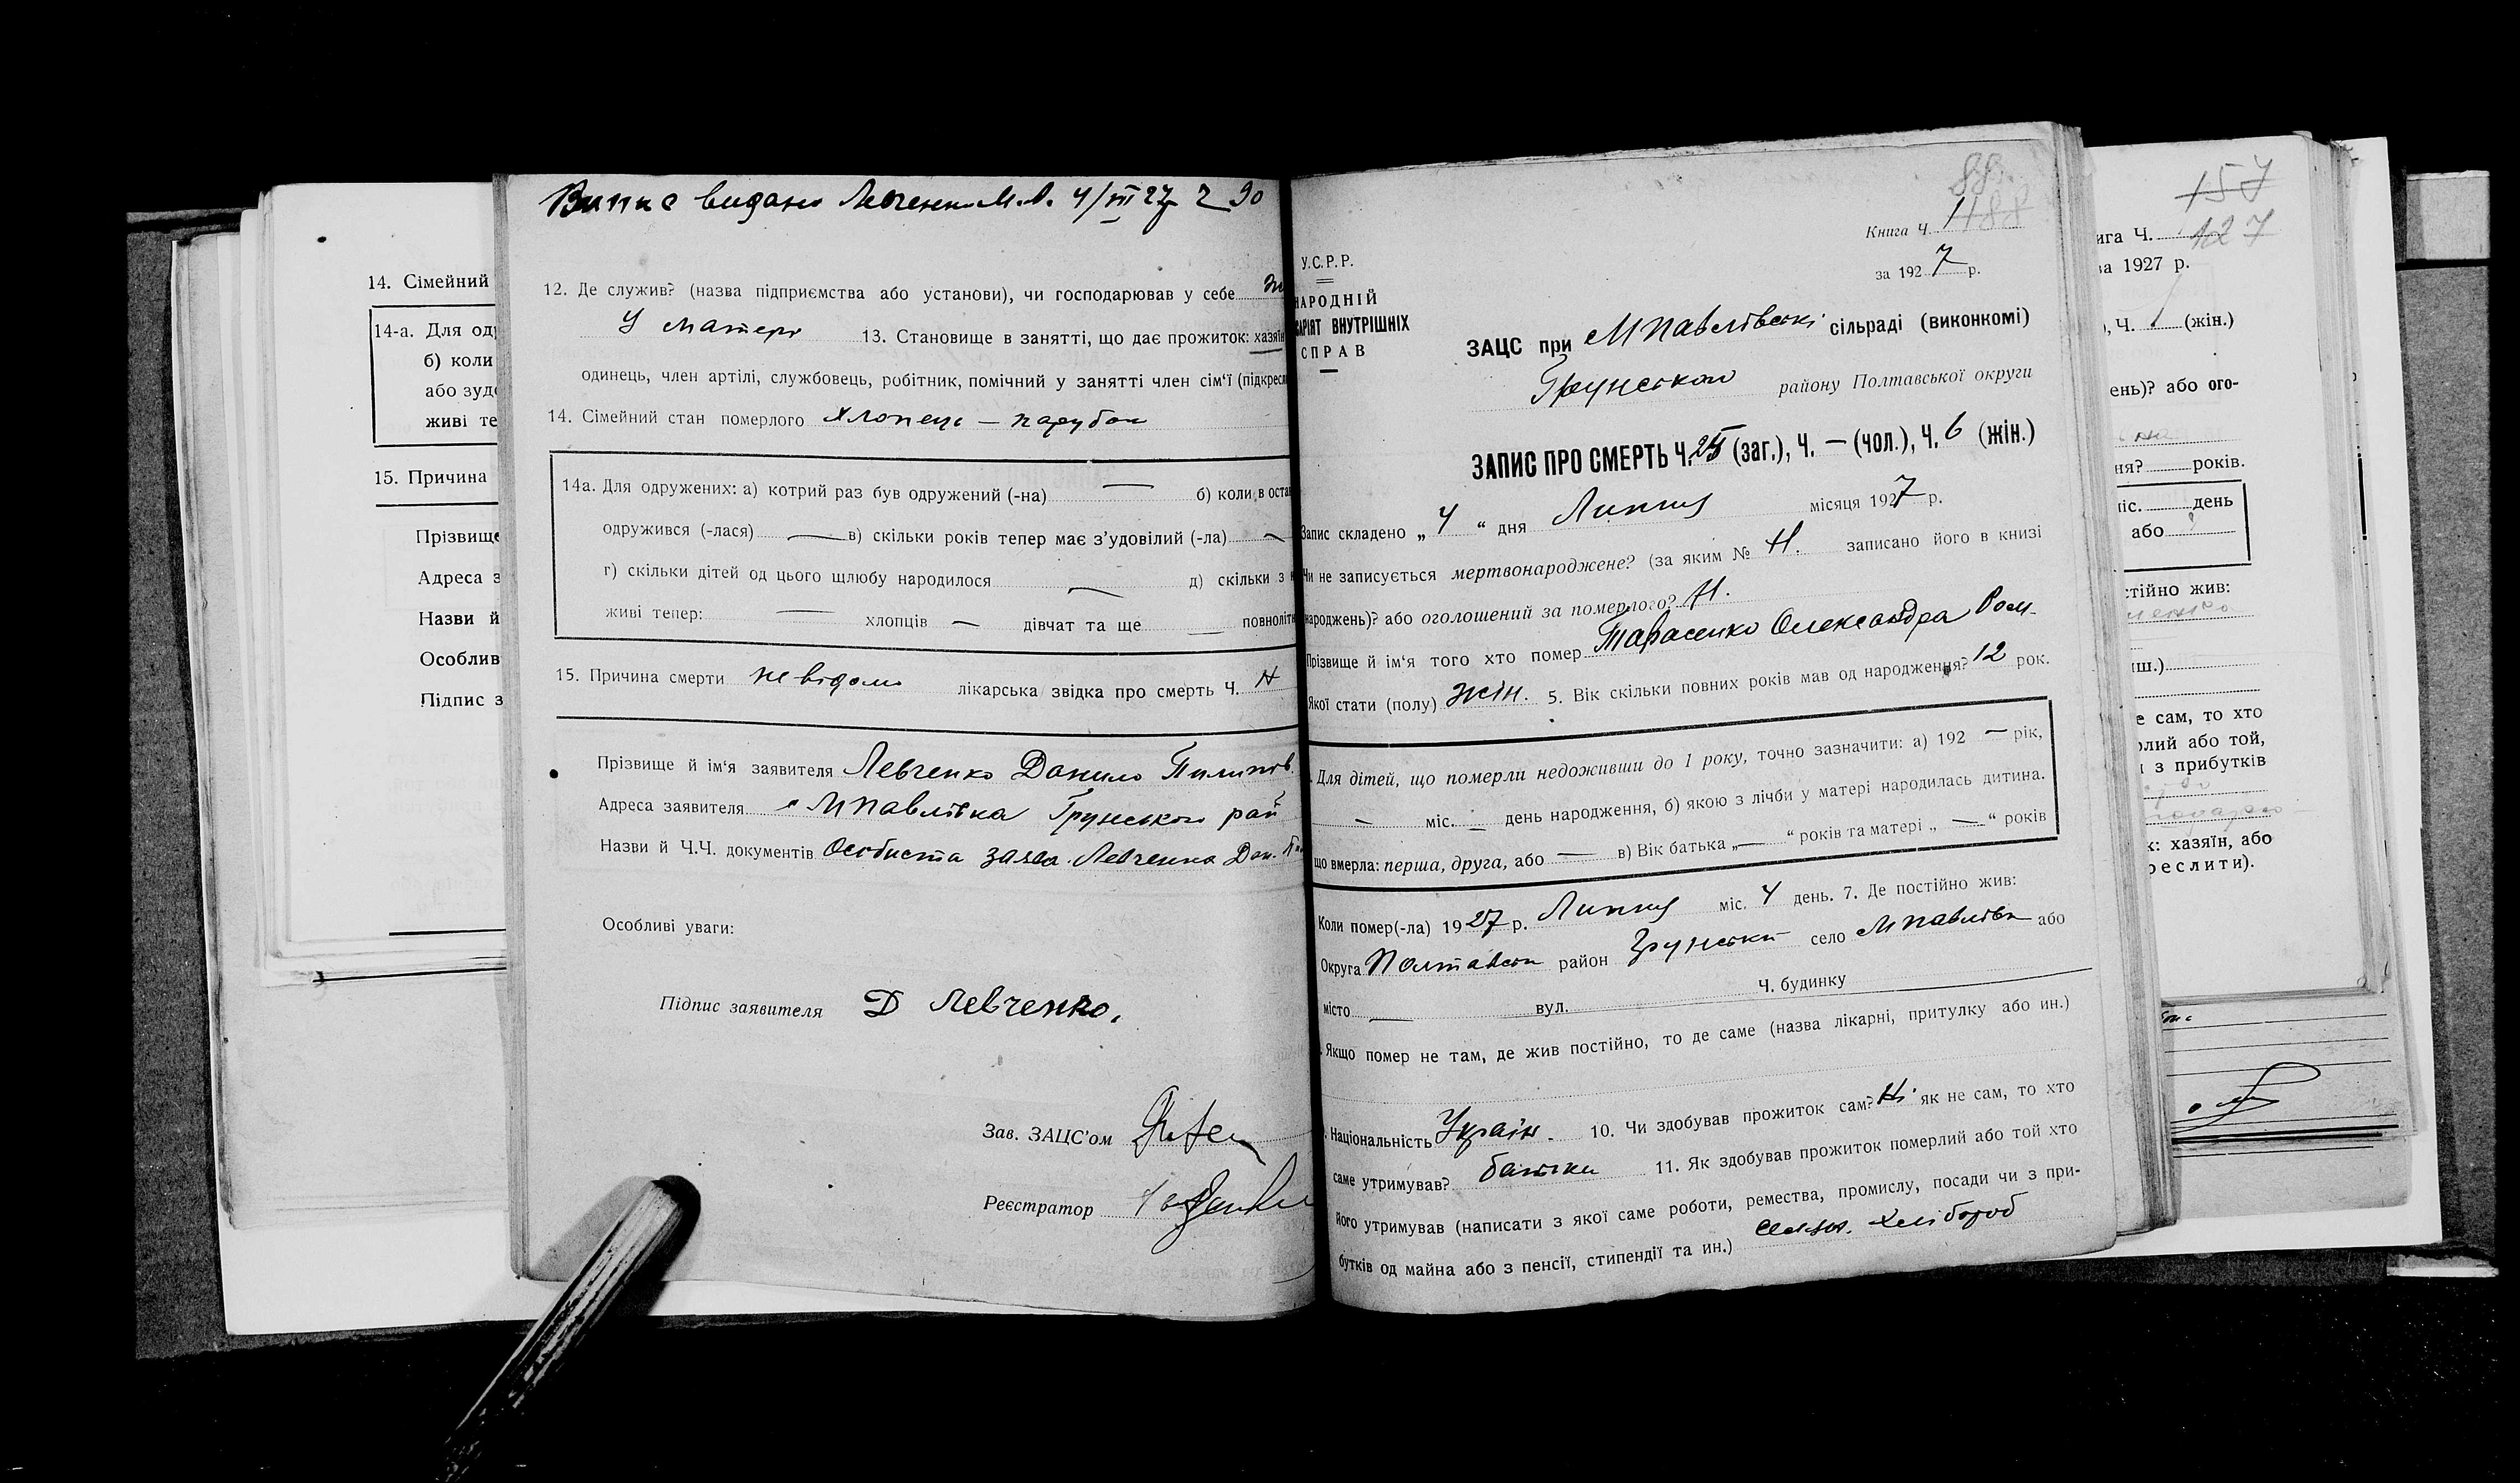 14. Сімейний
14-а. Для од
б) коли
або зуд
живі те
15. Причина
Прізвище
Адреса з
Назви й
Особлив
Підпис з
Випис видано Левченко 27 р 90
12. Де служив? (назва підприємства або установи), чи господарював у себе
У матери 13. Становище в занятті, що дає прожиток: хазяїн
одинець, член артілі, службовець, робітник, помічний у занятті член сім'ї (підкресл
14. Сімейний стан померлого хлопець — парубок
14а. Для одружених: а) котрий раз був одружений (-на) — б) коли в оста
одружився (-лася) — в) скільки років тепер має з'удовілий (-ла) —
г) скільки дітей од цього щлюбу народилося — д) скільки з н
живі тепер: — хлопців — дівчат та ще — повноліт
15. Причина смерти невідомо лікарська звідка про смерть Ч. Н
Прізвище й ім'я заявителя Левченко Данило Пилипов.
Адреса заявителя с МПавлівка Грунського рай
Назви й Ч.Ч. документів Особиста заява Левченка Дан.
Особливі уваги:
Підпис заявителя Д Левченко.
Зав. ЗАЦС'ом
Реєстратор
88
Книга Ч. 1 188
за 1927 р.
У.С.Р.Р.
НАРОДНІЙ
АРІЯТ ВНУТРІШНІХ
СПРАВ
ЗАЦС при МПавлівські сільраді (виконкомі)
Грунського району Полтавської округи
ЗАПИС ПРО СМЕРТЬ Ч. 25 (заг.), Ч. — (чол.), Ч. 6 (жін.)
Запис складено „ 4 “ дня Липня місяця 1927 р.
Чи не записується мертвонароджене? (за яким № Н. записано його в книзі
народжень)? або оголошений за померлого? Н.
Прізвище й ім'я того хто помер Тарасенко Олександра Ром.
Якої стати (полу) жін. 5. Вік скільки повних років мав од народження? 12 рок.
Для дітей, що померли недоживши до 1 року, точно зазначити: а) 192 — рік,
— міс. — день народження, б) якою з лічби у матері народилась дитина.
що вмерла: перша, друга, або — в) Вік батька „—“ років та матері „—“ років
Коли помер(-ла) 1927 р. Липня міс. 4 день. 7. Де постійно жив:
Округа Полтавськ район Грунськи село МПавлівк або
місто — вул. Ч. будинку
Якщо помер не там, де жив постійно, то де саме (назва лікарні, притулку або ин.)
Національність Україн. 10. Чи здобував прожиток сам? Ні як не сам, то хто
саме утримував? батьки 11. Як здобував прожиток померлий або той хто
його утримував (написати з якої саме роботи, ремества, промислу, посади чи з при-
бутків од майна або з пенсії, стипендії та ин.) хлібороб
157
127
ига Ч.
за 1927 р.
), Ч. (жін.)
ень)? або ого-
ня? років.
міс. день
або
стійно жив:
иш.)
е сам, то хто
олий або той,
и з прибутків
к: хазяїн, або
реслити).